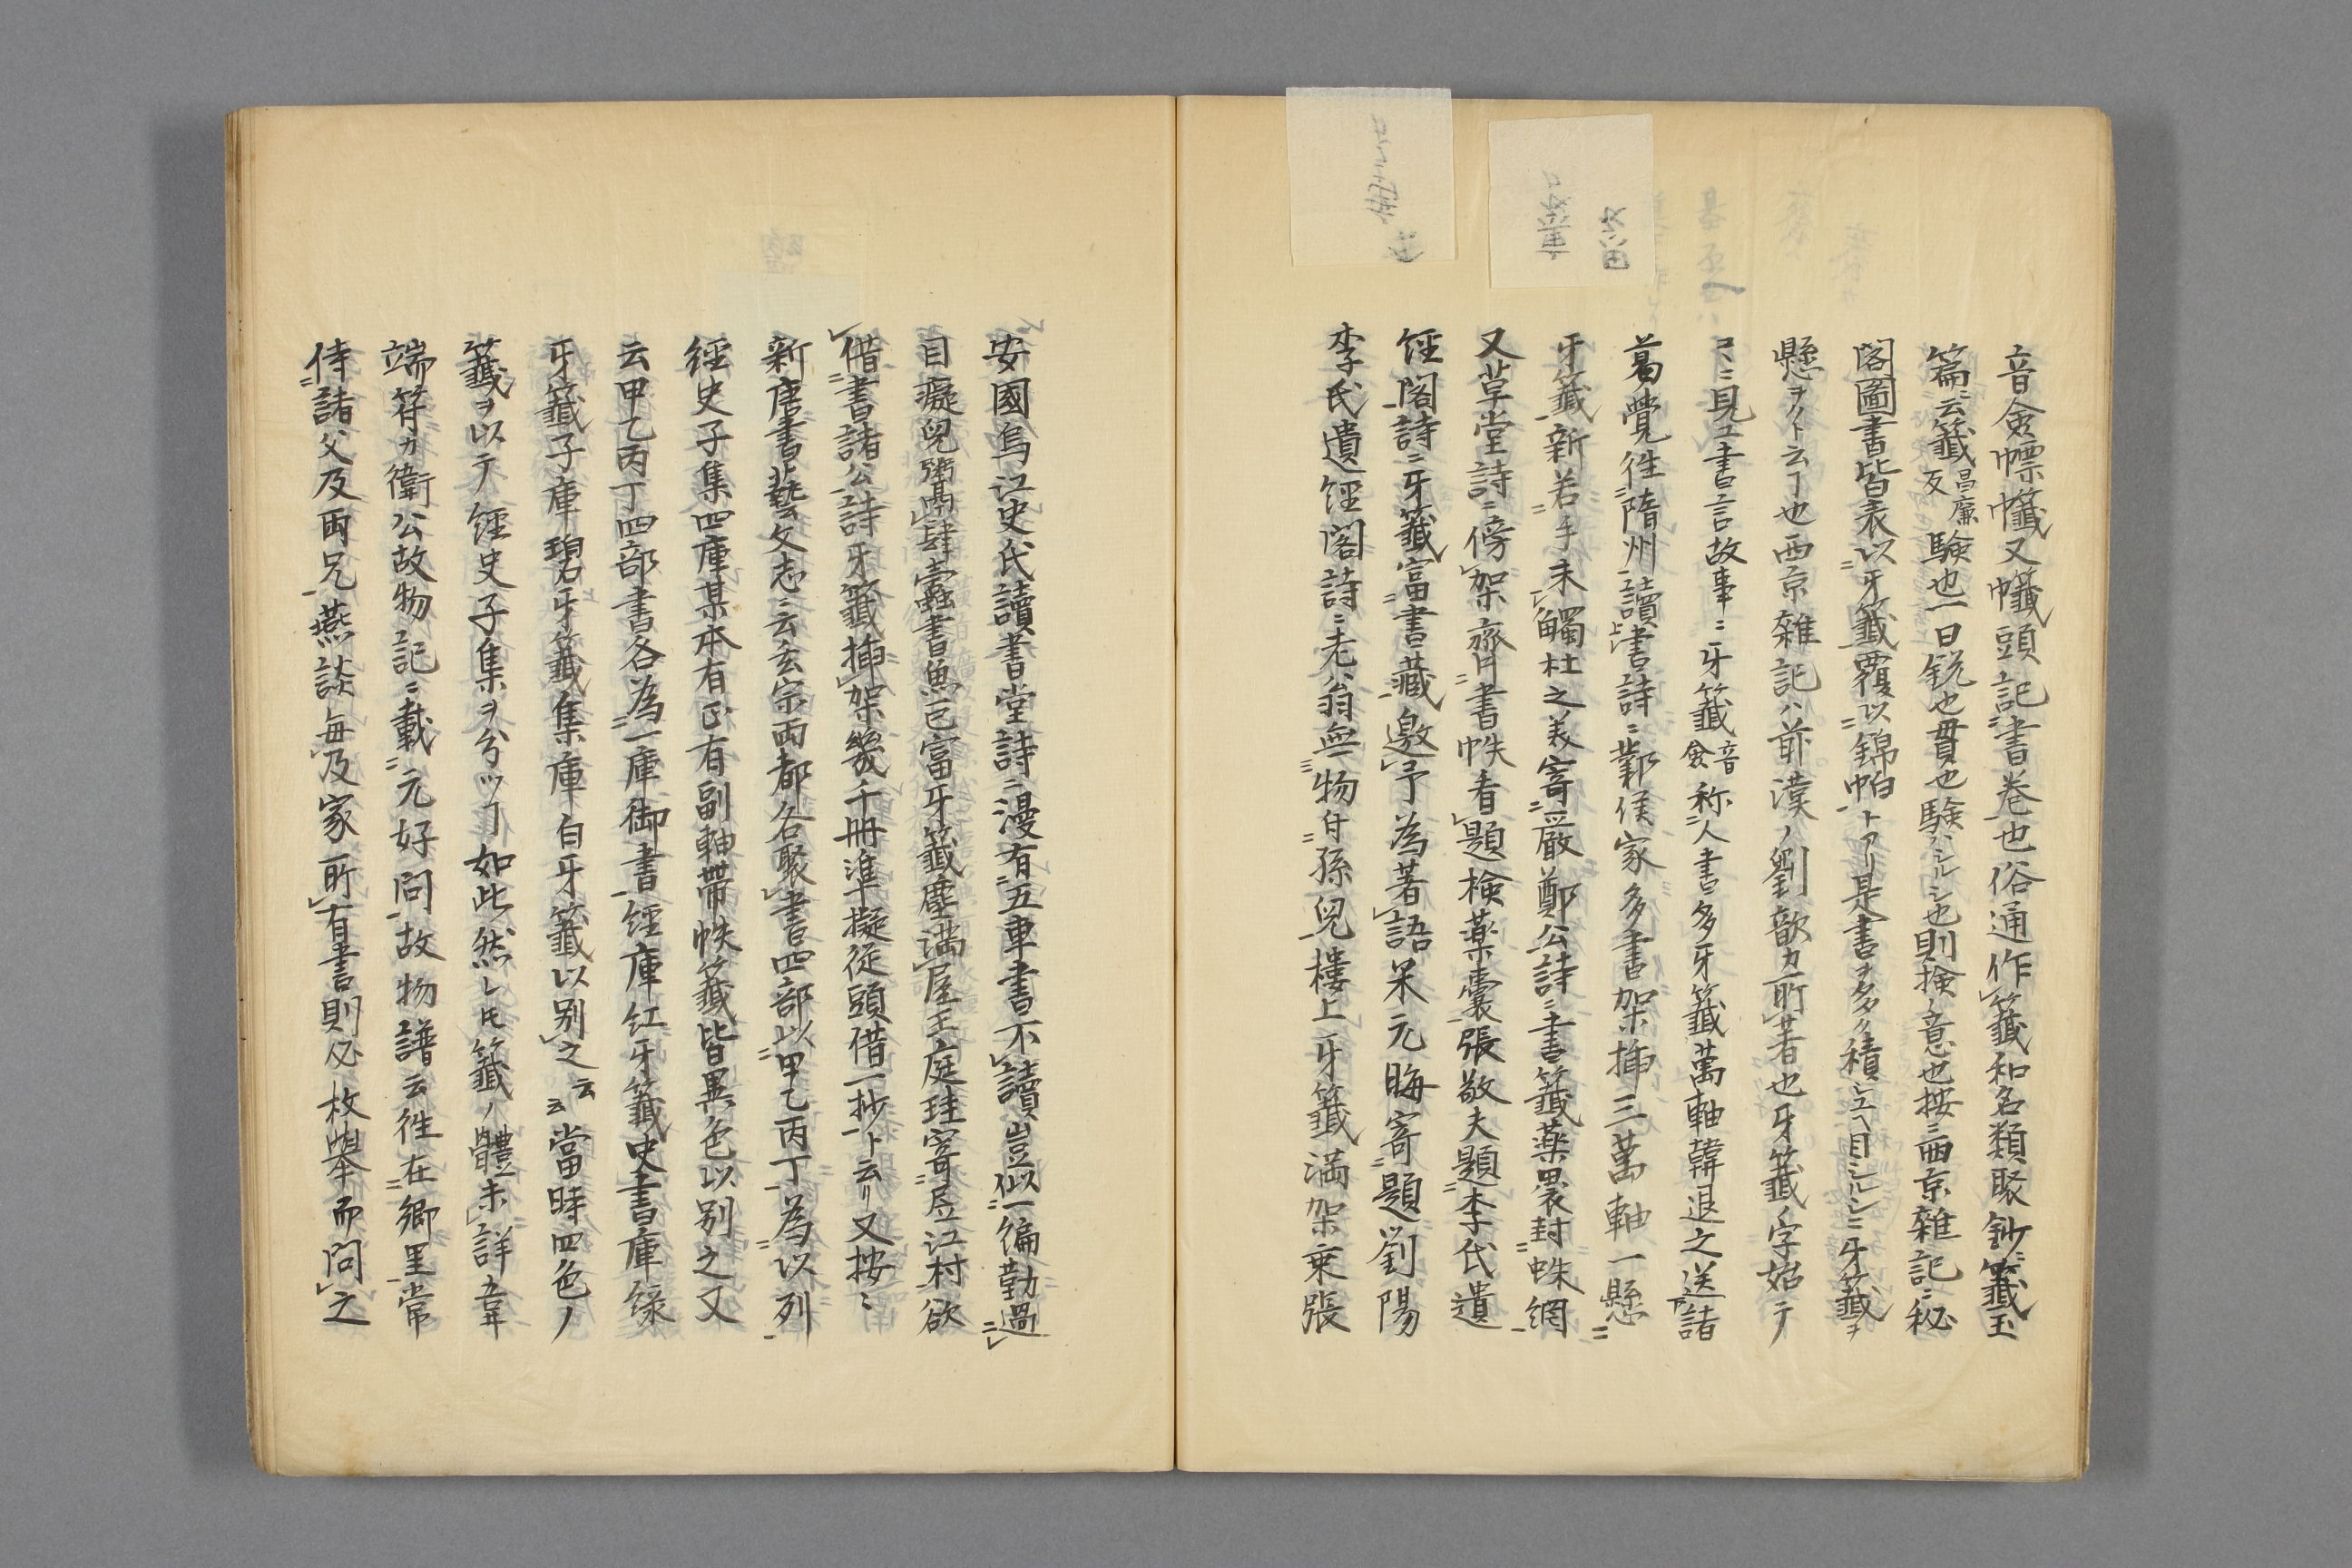 音僉㡽㡨又㡨頭記書卷也俗通作籤和名類聚鈔ニ籤玉
篇ニ云籤昌廉反驗也一曰銳也貫也驗ハシルシ也則撿ノ意也按ニ西京雜記ニ秘
閣圖書皆表以牙籤覆以錦帕トアリ是書ヲ多ク積ユヘ目シルシニ牙籤ヲ
懸ヲクト云ヿ也西京雜記ハ前漢ノ劉歆カ所著也牙籤ノ字始テ
コヽニ見エ書言故事ニ牙籤音僉称人書多牙籤萬軸韓退之送諸
葛覺徃隋州讀書詩ニ鄴侯家多書架揷三萬軸一懸
牙籤新若手未觸杜之美寄嚴鄭公詩ニ書籤藥裹封蛛網
又草堂詩ニ傍架齊書帙看題檢藥囊張敬夫題李氏遺
經閣詩ニ牙籤富書藏邀予為著語朱元晦寄題劉陽
李氏遺經閣詩ニ老翁無物付孫兒樓上牙籤滿架乘張
安國烏江史氏讀書堂詩ニ漫有五車書不讀豈似一編勤過
目癡兒粥高肆蠹書魚已富牙籤塵滿屋王庭珪寄屋江村欲
借書諸公詩牙籤揷架幾千冊準擬從頭借一抄ト云リ又按ニ
新唐書藝文志ニ云玄宗兩都各聚書四部以甲乙丙丁為以列
經史子集四庫某本有正有副軸帶帙籤皆異色以別之又
云甲乙丙丁四部書各為一庫御書經庫紅牙籤史書庫綠
牙籤子庫碧牙籤集庫白牙籤以別之云云當時四色ノ
籤ヲ以テ經史子集ヲ分ツヿ如此然レ𪜈籤ノ體未詳韋
端符カ衛公故物記ニ載元好問故物譜云徃在鄉里常
侍諸父及兩兄燕談每及家所有書則必枚舉而問之